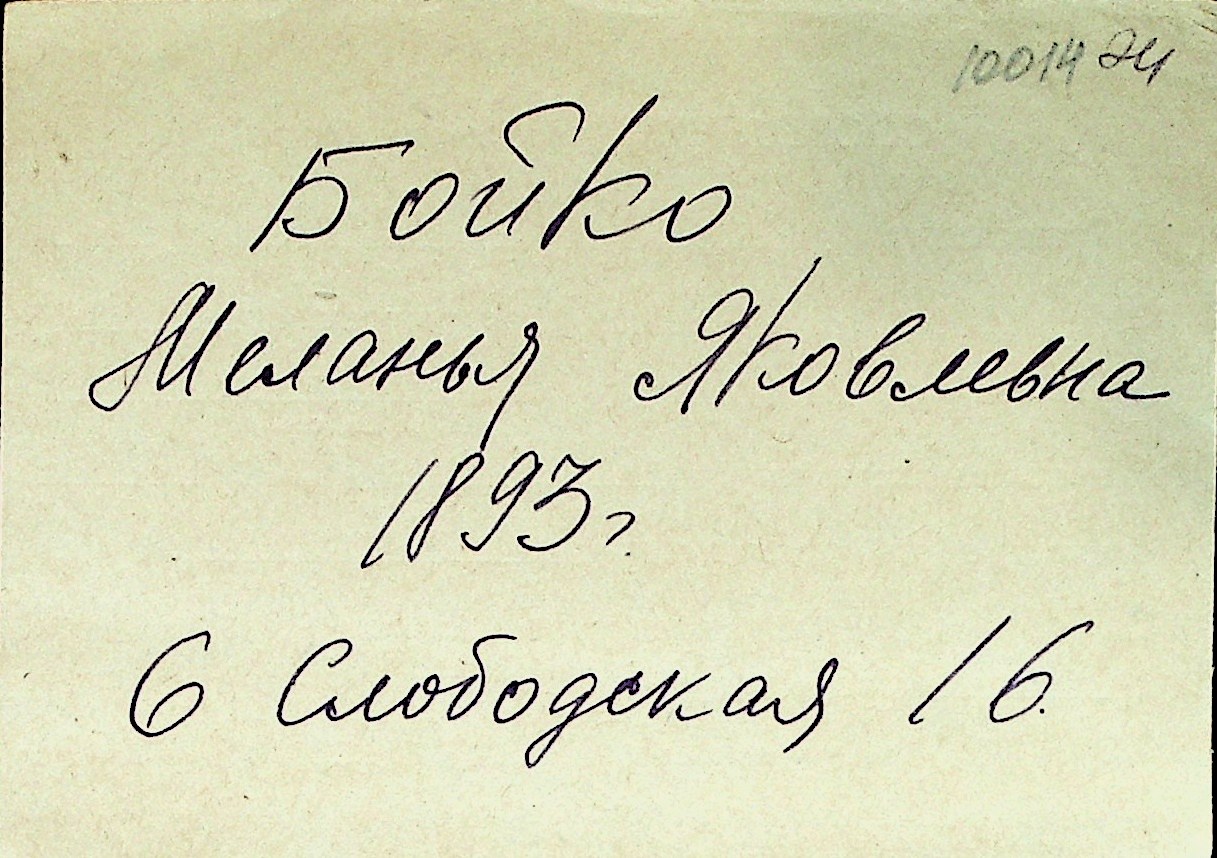 10014 24
Бойко
Меланья Яковлевна
1893 г.
6 Слободская 16.